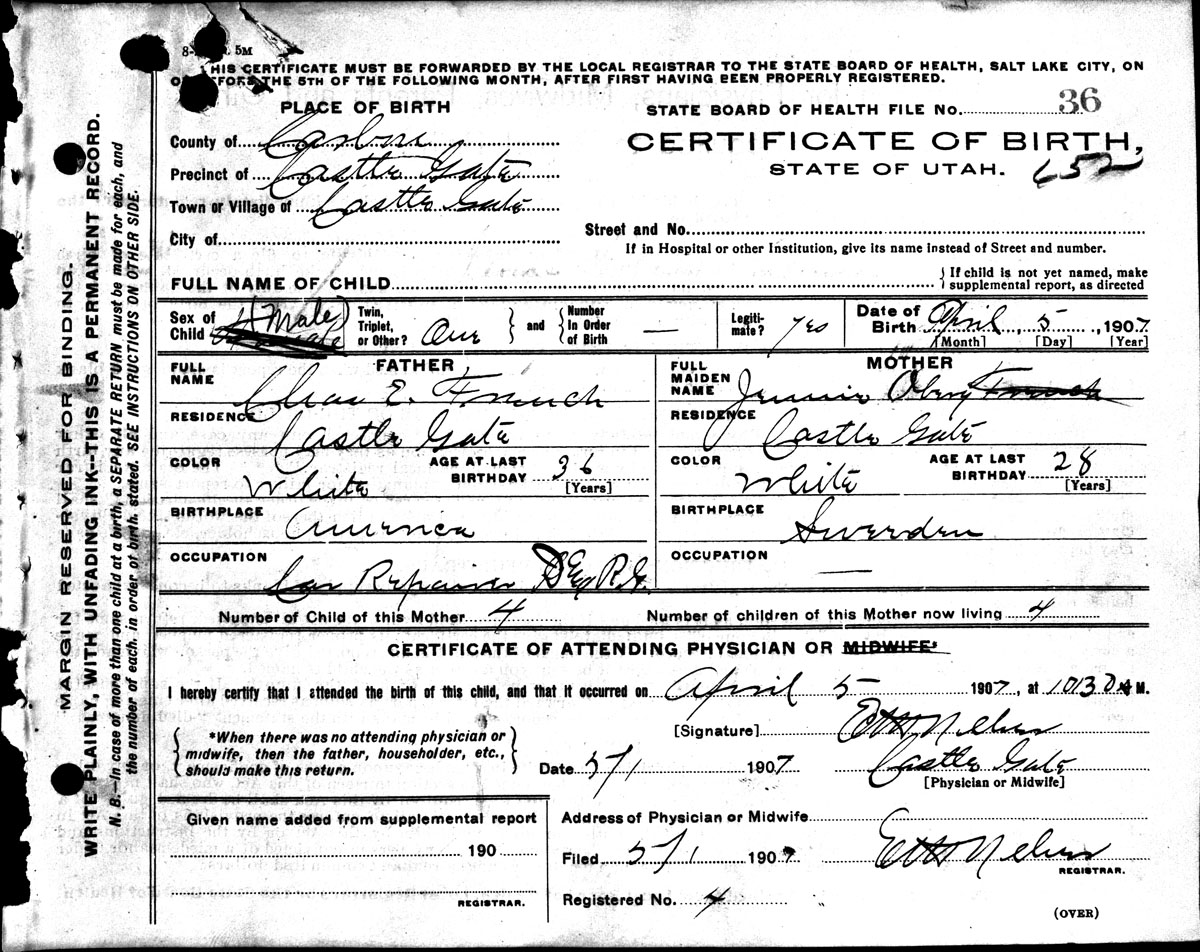 5M
THIS CERTIFICATE MUST BE FORWARDED BY THE LOCAL REGISTRAR TO THE STATE BOARD OF HEALTH, SALT LAKE CITY, ON
OR BEFORE THE 5TH OF THE FOLLOWING MONTH, AFTER FIRST HAVING BEEN PROPERLY REGISTERED.
PLACE OF BIRTH
STATE BOARD OF HEALTH FILE No. 36
County of Carbon
CERTIFICATE OF BIRTH,
Precinct of Castle Gate
STATE OF UTAH. 652
Town or Village of Castle Gate
City of
Street and No.
If in Hospital or other Institution, give its name instead of Street and number.
FULL NAME OF CHILD
{ If child is not yet named, make
supplemental report, as directed
Sex of Child (Male) Female
Twin, Triplet, or Other? One } and { Number In Order of Birth —
Legiti-mate? Yes
Date of Birth April, 5, 1907
[Month] [Day] [Year]
FATHER
FULL NAME Chas E. French
RESIDENCE Castle Gate
COLOR White AGE AT LAST BIRTHDAY 36 [Years]
BIRTHPLACE America
OCCUPATION Car Repairer R.G.
MOTHER
FULL MAIDEN NAME Jennie Oberg French
RESIDENCE Castle Gate
COLOR White AGE AT LAST BIRTHDAY 28 [Years]
BIRTHPLACE Sweeden
OCCUPATION —
Number of Child of this Mother 4 Number of children of this Mother now living 4
CERTIFICATE OF ATTENDING PHYSICIAN OR MIDWIFE*
I hereby certify that I attended the birth of this child, and that it occurred on April 5 1907, at 1030 M.
{ *When there was no attending physician or
midwife, then the father, householder, etc.,
should make this return. }
[Signature]
Date 5/1 1907 Castle Gate
[Physician or Midwife]
Given name added from supplemental report
190
REGISTRAR.
Address of Physician or Midwife
Filed 5/1 1907
REGISTRAR.
Registered No. 4
(OVER)
MARGIN RESERVED FOR BINDING.
WRITE PLAINLY, WITH UNFADING INK--THIS IS A PERMANENT RECORD.
N. B.—In case of more than one child at a birth, a SEPARATE RETURN must be made for each, and
the number of each, in order of birth, stated. SEE INSTRUCTIONS ON OTHER SIDE.